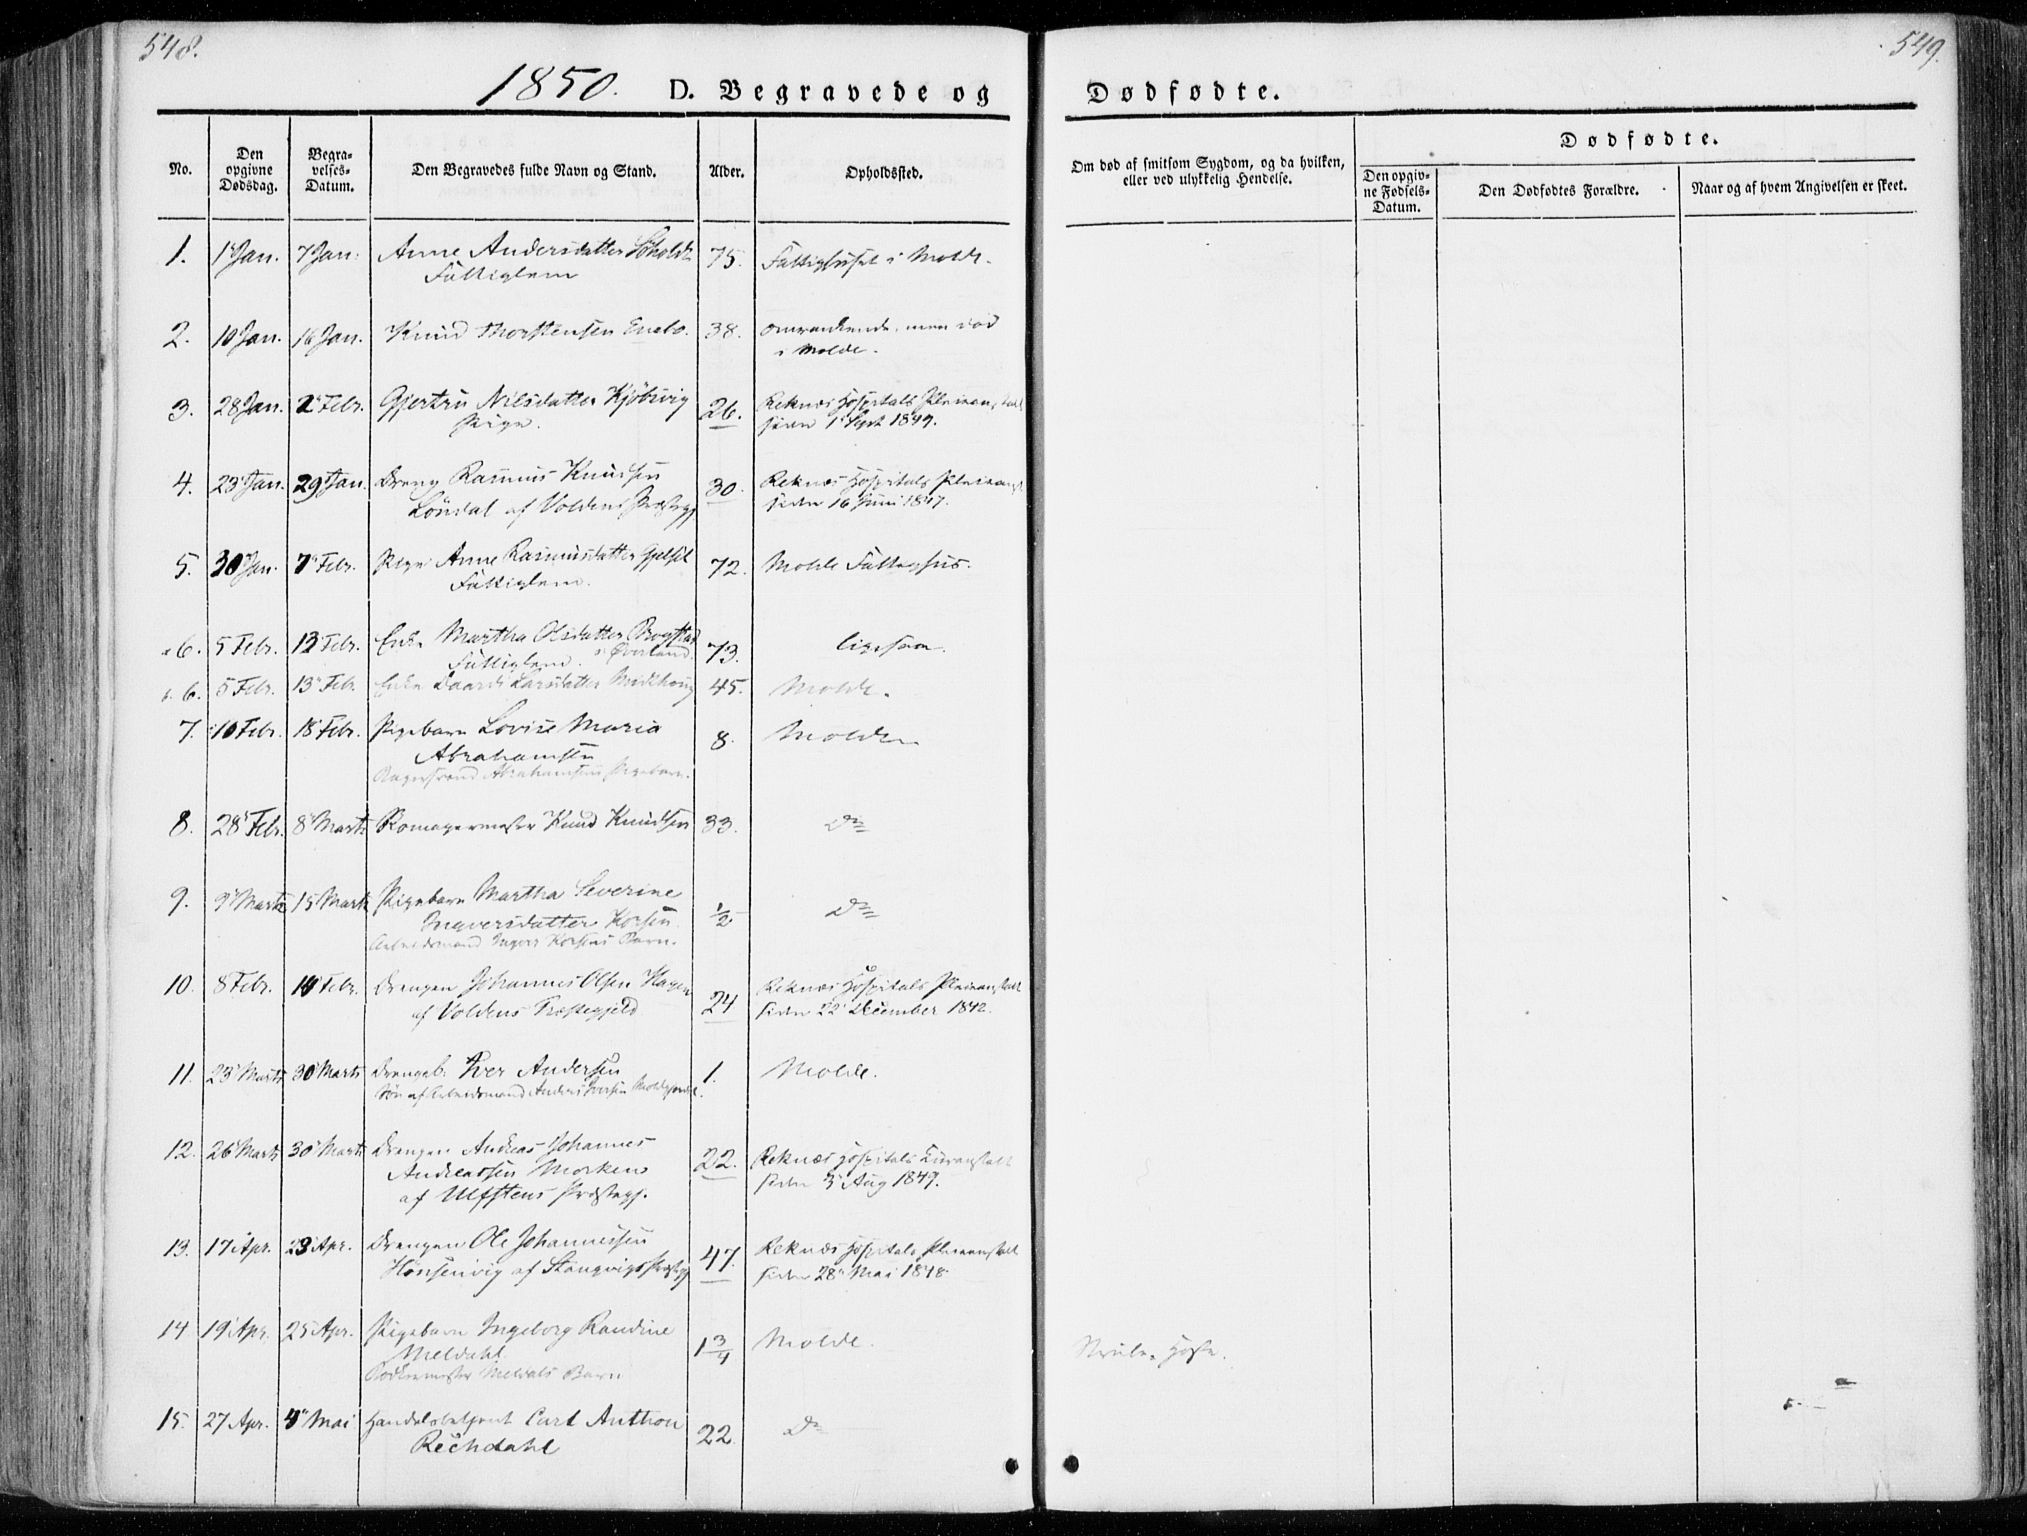 548.
549.
1850. D. Begravede og Dødfødte.
No.
Den opgivne Dødsdag.
Begravelses-Datum.
Den Begravedes fulde Navn og Stand.
Alder.
Opholdssted.
Om død af smitsom Sygdom, og da hvilken,
eller ved ulykkelig Hendelse.
Dødfødte.
Den opgivne Fødsels-Datum.
Den Dødfødtes Forældre.
Naar og af hvem Angivelsen er skeet.
1. 1 Jan. 7 Jan. Anne Andersdatter 75. Fattighuset i Molde.
Fattiglem
2. 10 Jan. 16 Jan. Knud Thorstensen Enebo. 38. omvankende, men død
i Molde.
3. 28 Jan. 2 Febr. Gjertru Nilsdatter 26. Reknæs Hospitals Pleieanstalt
Pige. siden 1 Sept 1849.
4. 23 Jan. 29 Jan. Dreng Rasmus Knudsen 30. Reknæs Hospitals Pleieanst.
Løndal af Voldens Præstegj siden 16 Juni 1847.
5. 30 Jan. 7 Febr. Pige Anne Rasmusdatter 72. Molde Fattighus.
Fattiglem.
a 6. 5 Febr. 13 Febr. Enke Martha Olsdatter Bogstad 73. ligesaa.
Fattiglem. i Øverland.
b. 6. 5 Febr. 13 Feb. Enke Larsdatter 45. Molde.
7. 10 Febr. 18 Febr. Pigebarn Lovise Maria 8. Molde
Abrahamsen
Abrahamsens Pigebarn.
8. 28 Febr. 8 Marts Knud Knudsen 33. Do
9. 9 Marts 15 Marts Pigebarn Martha Severine ½ Do
Ingversdatter Korsen
Arbeidsmand Ingver Korsens Barn.
10. 8 Febr. 14 Febr. Drengen Johannes Olsen Hagen 24 Reknæs Hospitals Pleieanstalt
af Voldens Præstegjeld siden 22 December 1842.
11. 23 Marts 30 Marts Drengeb. Iver Andersen 1. Molde.
Søn af Arbeidsmand Anders Iversen
12. 26 Marts 30 Marts Drengen Andreas Johannes 22. Reknæs Hospitals Curanstalt
Andreassen Morken siden 3 Aug 1849.
af Ulfstens Præstegj.
13. 17 Apr. 23 Apr. Drengen Ole Johannessen 47. Reknæs Hospitals Pleieanstalt
Hønsenvig af Stangvigs Præstegj siden 28 Mai 1848.
14 19 Apr. 25 Apr. Pigebarn Ingeborg Randine 1 ¾ Molde. Hoste.
Meldahl
Meldals Barn
15. 27 Apr. 4 Mai Handelsbetjent Carl Anthon 22. Do
Rechdahl